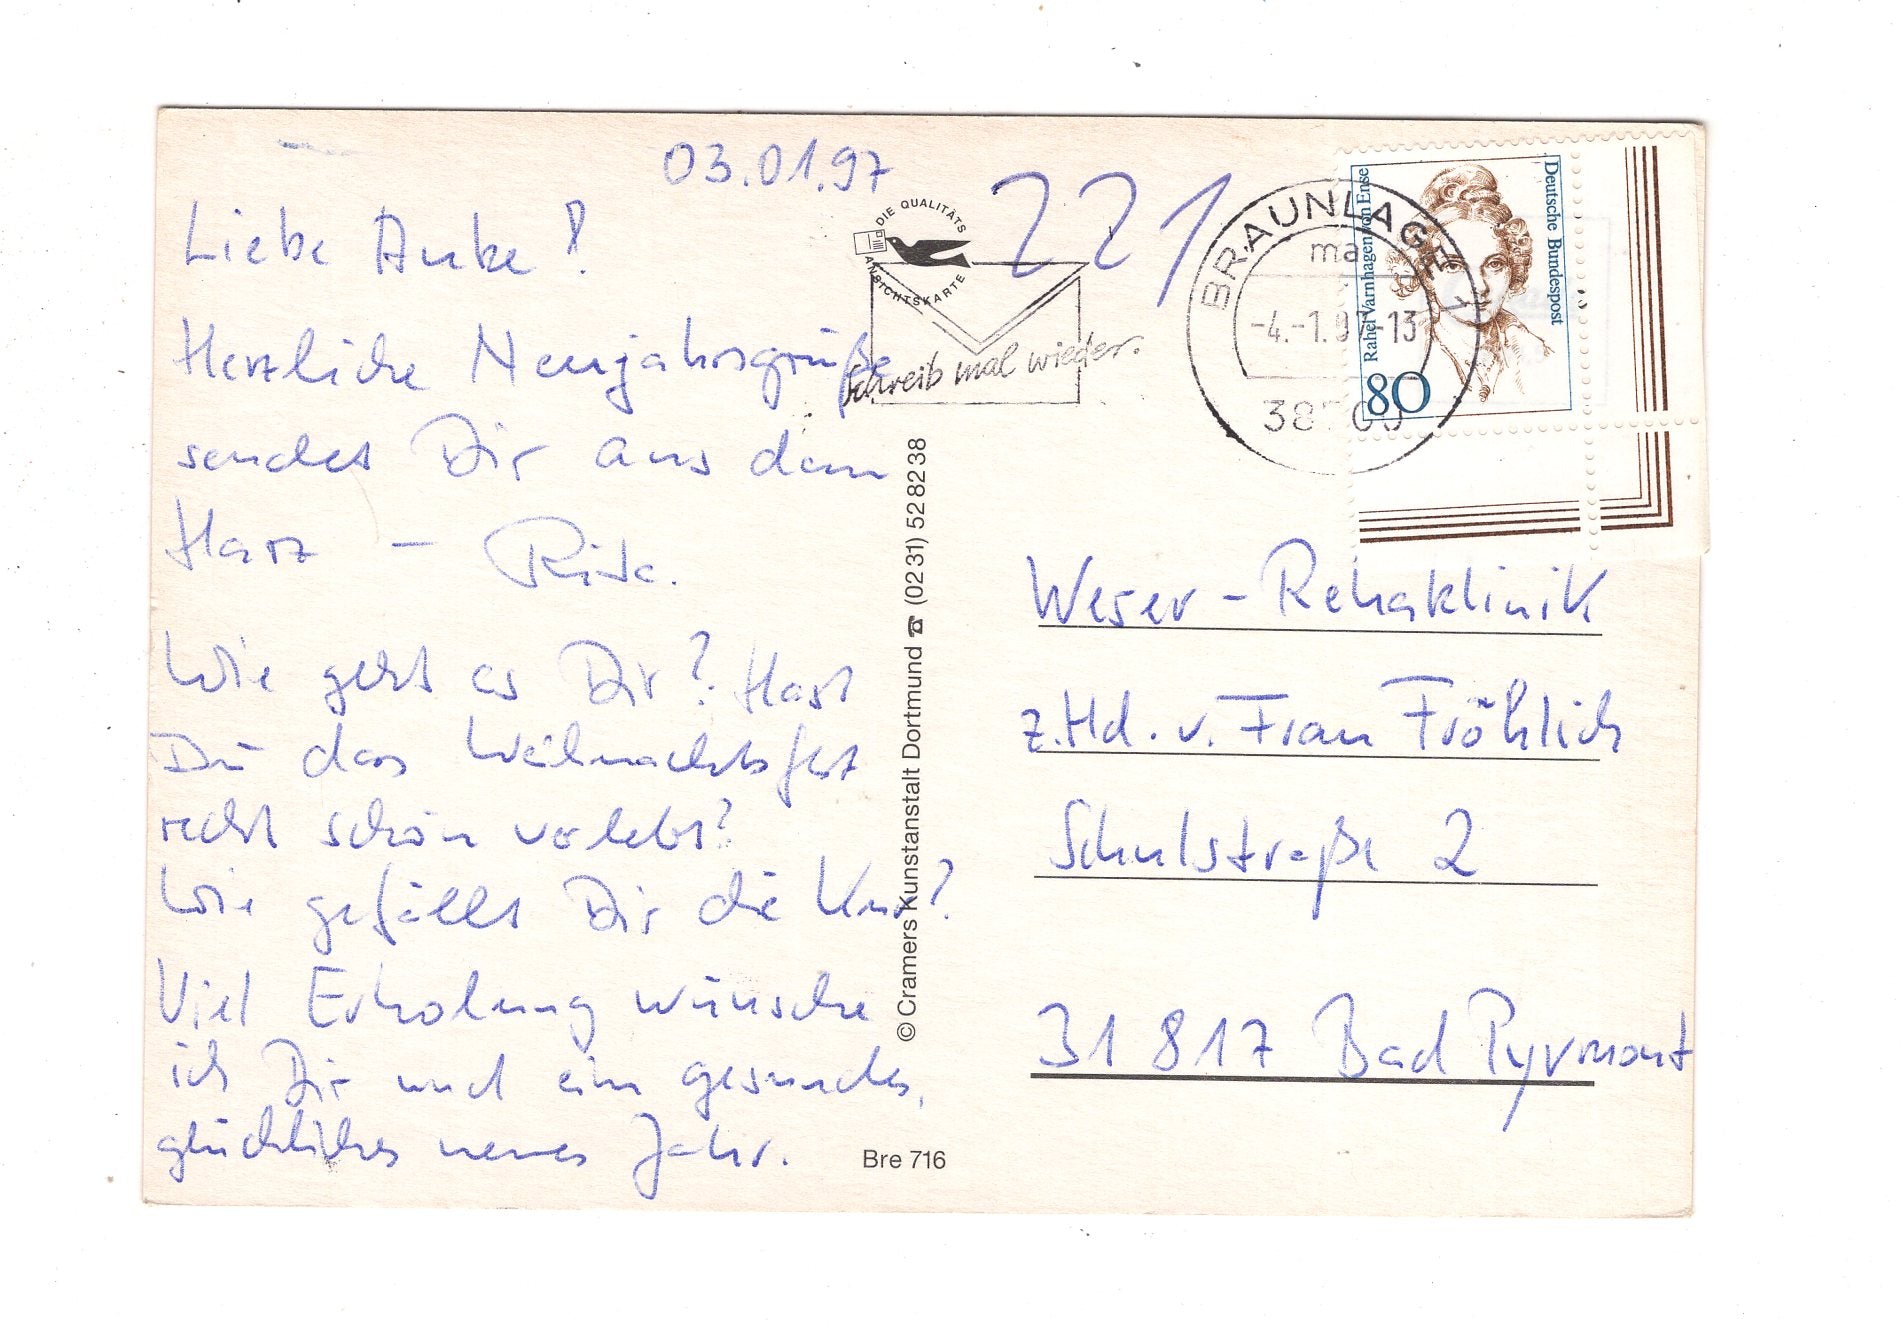 03.01.97
Liebe Anke!
Herzliche Neujahrsgrüße
sendet Dir aus dem
Harz – Rita.
Wie geht es Dir? Hast
Du das Weihnachtsfest
recht schön verlebt?
Wie gefällt Dir die Kur?
Viel Erholung wünsche
ich Dir und ein gesundes,
glückliches neues Jahr.
DIE QUALITÄTS
ANSICHTSKARTE
221
Schreib mal wieder.
BRAUNLAGE 1
ma
-4.-1.97-13
Rahel Varnhagen von Ense
Deutsche Bundespost
80
© Cramers Kunstanstalt Dortmund ☎ (0231) 52 82 38
Bre 716
Weser-Rehaklinik
z.Hd. v. Frau Fröhlich
Schulstraße 2
31 817 Bad Pyrmont